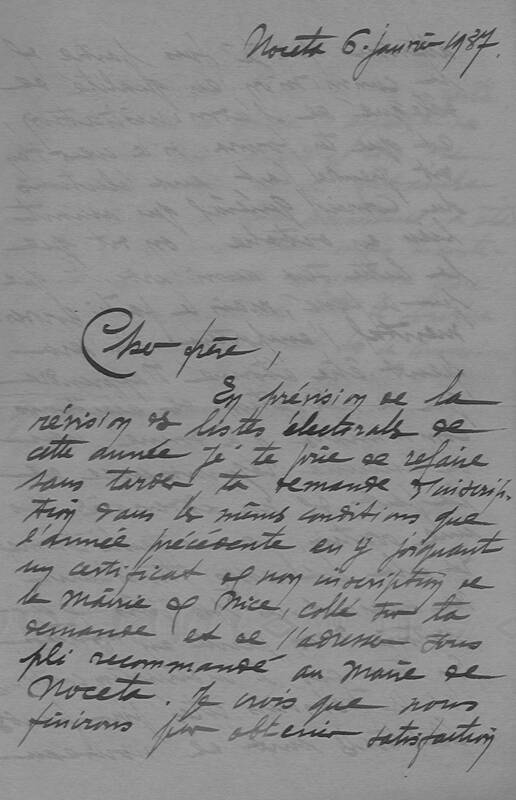 Noceta 6 janvier 1937.
Cher père,
En prévision de la
révision des listes électorales de
cette année je te prie de refaire
sans tarder ta demande d'inscrip-
tion dans les mêmes conditions que
l'année précédente en y joignant
un certificat de non inscription de
la Mairie de Nice, collé sur ta
demande et de l'adresser sous
pli recommandé au Maire de
Noceta. Je crois que nous
finirons par obtenir satisfaction